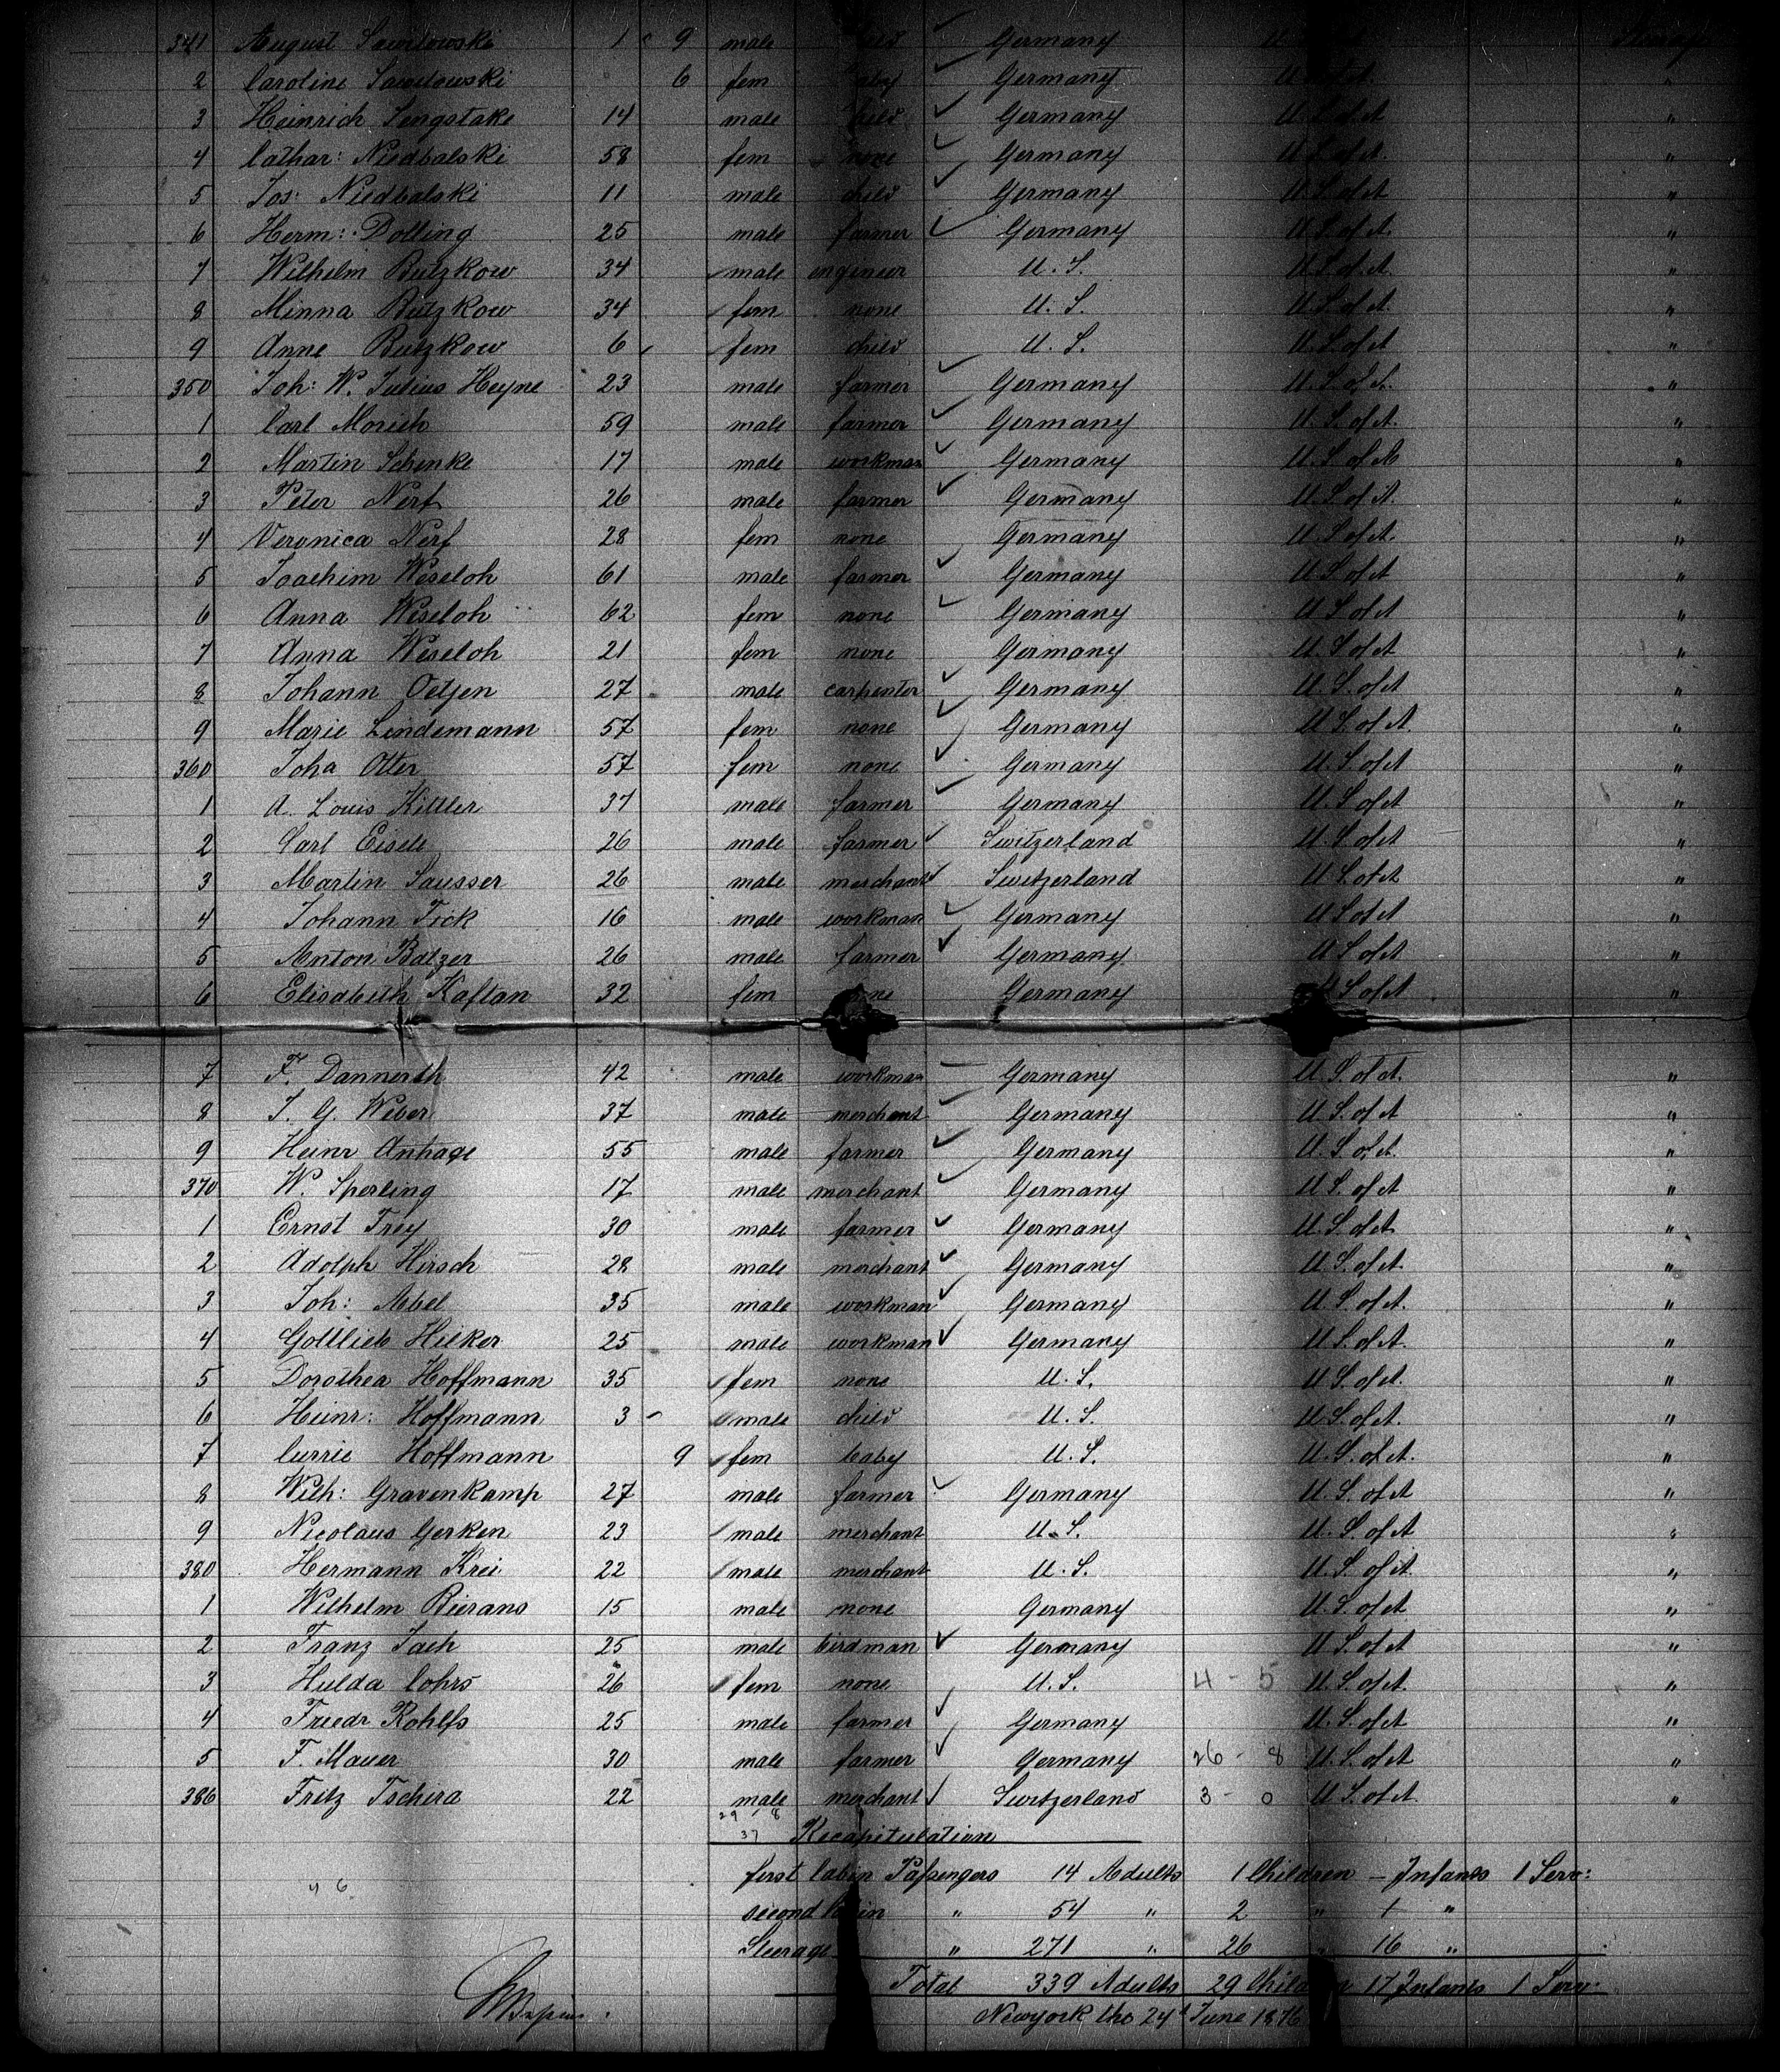 341 August Sawitowski 1 9 male child Germany U. S. of A. Steerage
2 Caroline Sawitowski 6 fem baby Germany U. S. of A. "
3 Heinrich Sengstake 14 male child Germany U. S. of A "
4 Cathar: Niedbalski 58 fem none Germany U. S. of A. "
5 Jos: Niedbalski 11 male child Germany U. S. of A "
6 Herm: Dolling 25 male farmer Germany U. S. of A. "
7 Wilhelm Butzkow 34 male engineer U. S. U. S. of A. "
8 Minna Butzkow 34 fem none U. S. U. S. of A. "
9 Anne Butzkow 6 fem child U. S. U. S. of A "
350 Joh: W. Julius Heyne 23 male farmer Germany U. S. of A. "
1 Carl Morich 59 male farmer Germany U. S. of A. "
2 Martin Schenke 17 male workman Germany U. S. of A "
3 Peter Nerf 26 male farmer Germany U. S. of A. "
4 Veronica Nerf 28 fem none Germany U. S. of A. "
5 Joachim Weseloh 61 male farmer Germany U. S. of A "
6 Anna Weseloh 62 fem none Germany U. S. of A "
7 Anna Weseloh 21 fem none Germany U. S. of A "
8 Johann Oetjen 27 male carpenter Germany U. S. of A "
9 Marie Lindemann 57 fem none Germany U. S. of A. "
360 Joha Otter 57 fem none Germany U. S. of A "
1 A. Louis Kittler 37 male farmer Germany U. S. of A "
2 Carl Eisele 26 male farmer Switzerland U. S. of A "
3 Martin Sausser 26 male merchant Switzerland U. S. of A "
4 Johann Fick 16 male workman Germany U. S. of A "
5 Anton Batzer 26 male farmer Germany U. S. of A "
6 Elisabeth Kaftan 32 fem none Germany U. S. of A "
7 F. Dannerth 42 male workman Germany U. S. of A. "
8 J. G. Weber 37 male merchant Germany U. S. of A "
9 Heinr Anhage 55 male farmer Germany U. S. of A. "
370 W. Sperling 17 male merchant Germany U. S. of A "
1 Ernst Frey 30 male farmer Germany U. S. of A "
2 Adolph Hirsch 28 male merchant Germany U. S. of A. "
3 Joh: Abel 35 male workman Germany U. S. of A. "
4 Gottlieb Hilker 25 male workman Germany U. S. of A. "
5 Dorothea Hoffmann 35 fem none U. S. U. S. of A. "
6 Heinr: Hoffmann 3 male child U. S. U. S. of A. "
7 Currie Hoffmann 9 fem baby U. S. U. S. of A. "
8 Wilh: Gravenkamp 27 male farmer Germany U. S. of A "
9 Nicolaus Gerken 23 male merchant U. S. U. S. of A "
380 Hermann Krei 22 male merchant U. S. U. S. of A. "
1 Wilhelm Bierans 15 male none Germany U. S. of A "
2 Franz Jach 25 male birdman Germany U. S. of A "
3 Hulda Cohrs 26 fem none U. S. 4 - 5 U. S. of A. "
4 Friedr Rohlfs 25 male farmer Germany U. S. of A "
5 F. Mauer 30 male farmer Germany 26 - 8 U. S. of A "
386 Fritz Tschira 22 male merchant Switzerland 3 - 0 U. S. of A. "
29 8
37 Recapitulation
first Cabin Passengers 14 Adults 1 Children - Infants 1 Serv:
4 6
second Cabin " 54 " 2 " 1 "
Steerage " 271 " 26 " 16 "
Total 339 Adults 29 Children 17 Infants 1 Serv:
Newyork the 24t June 1876